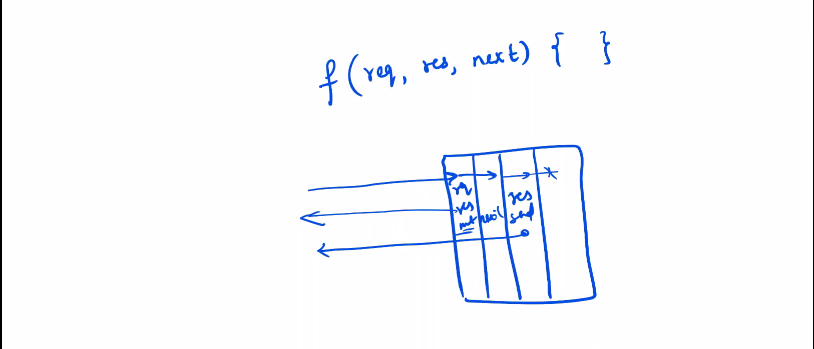 f (req, res, next) { }
req
res
next
next
res
send